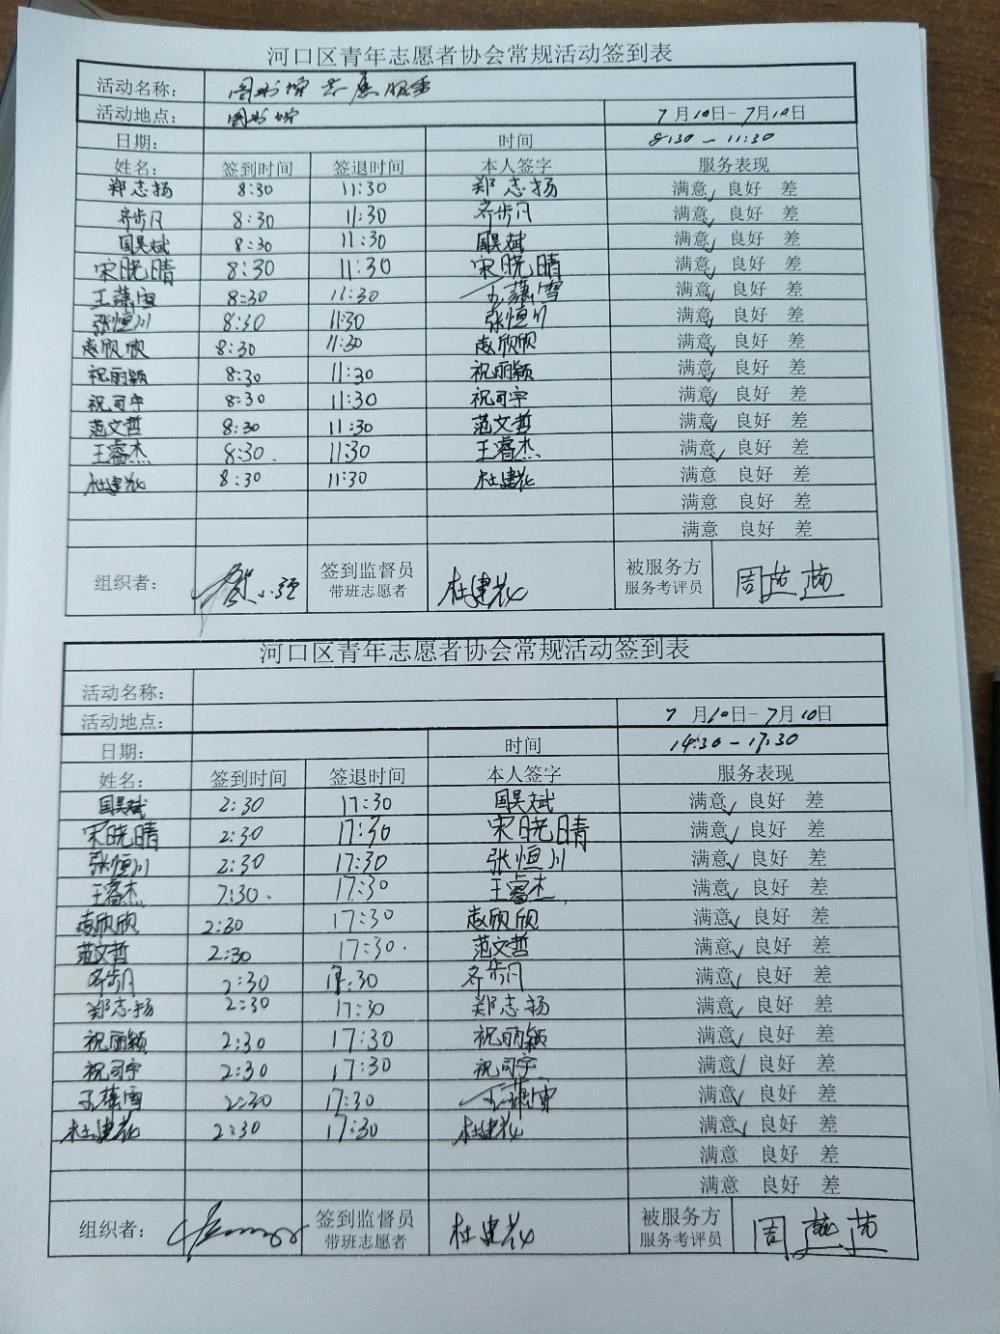 河口区青年志愿者协会常规活动签到表
活动名称： 图书馆志愿服务
活动地点： 图书馆 7月10日-7月10日
日期： 时间 8:30-11:30
姓名： 签到时间 签退时间 本人签字 服务表现
郑志扬 8:30 11:30 郑志扬 满意✓ 良好 差
齐步凡 8:30 11:30 齐步凡 满意✓ 良好 差
国昊斌 8:30 11:30 国昊斌 满意✓ 良好 差
宋晓晴 8:30 11:30 宋晓晴 满意✓ 良好 差
王蕴雪 8:30 11:30 王蕴雪 满意✓ 良好 差
张恒川 8:30 11:30 张恒川 满意✓ 良好 差
赵欣欣 8:30 11:30 赵欣欣 满意✓ 良好 差
祝丽颖 8:30 11:30 祝丽颖 满意✓ 良好 差
祝司宇 8:30 11:30 祝司宇 满意✓ 良好 差
范文哲 8:30 11:30 范文哲 满意✓ 良好 差
王睿杰 8:30. 11:30 王睿杰 满意✓ 良好 差
杜建花 8:30 11:30 杜建花 满意 良好 差
满意 良好 差
满意 良好 差
组织者： 签到监督员 带班志愿者 杜建花 被服务方 服务考评员 周燕燕
河口区青年志愿者协会常规活动签到表
活动名称：
活动地点： 7月10日-7月10日
日期： 时间 14:30-17:30
姓名： 签到时间 签退时间 本人签字 服务表现
国昊斌 2:30 17:30 国昊斌 满意✓ 良好 差
宋晓晴 2:30 17:30 宋晓晴 满意✓ 良好 差
张恒川 2:30 17:30 张恒川 满意✓ 良好 差
王睿杰 2:30. 17:30 王睿杰 满意✓ 良好 差
赵欣欣 2:30 17:30 赵欣欣 满意✓ 良好 差
范文哲 2:30 17:30. 范文哲 满意✓ 良好 差
齐步凡 2:30 17:30 齐步凡 满意✓ 良好 差
郑志扬 2:30 17:30 郑志扬 满意✓ 良好 差
祝丽颖 2:30 17:30 祝丽颖 满意✓ 良好 差
祝司宇 2:30 17:30 祝司宇 满意✓ 良好 差
王蕴雪 2:30 17:30 王蕴雪 满意✓ 良好 差
杜建花 2:30 17:30 杜建花 满意✓ 良好 差
满意 良好 差
满意 良好 差
组织者： 签到监督员 带班志愿者 杜建花 被服务方 服务考评员 周燕燕